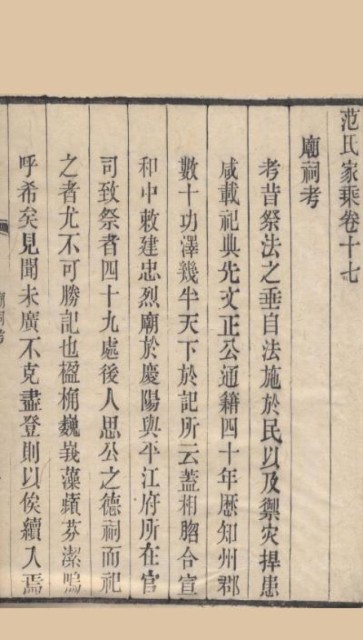 范氏家乘卷十七
廟祠考
考昔祭法之垂自法施於民以及禦灾捍患
咸載祀典先文正公通籍四十年歷知州郡
數十功澤幾半天下於記所云蓋相脗合宣
和中敕建忠烈廟於慶陽與平江府所在官
司致祭者四十九處後人思公之德祠而祀
之者尤不可勝記也楹桷巍峩藻蘋芬潔嗚
呼希矣見聞未廣不克盡登則以俟續入焉